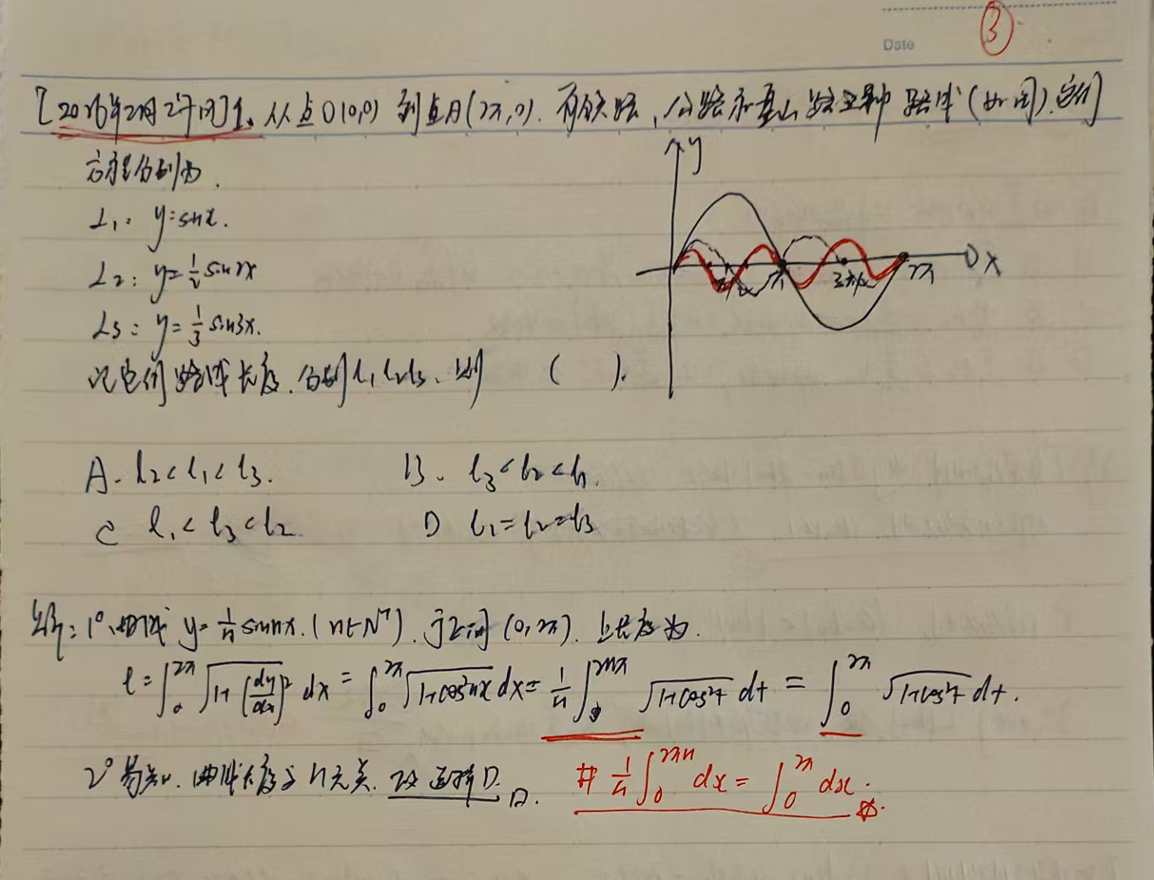 Date ③
[2016年2月2午10]1. 从点O(0,0) 到点A(2π,0). 有铁路,公路和盘山路三种路线(如图).它们
方程分别为.
L₁: y=sinx.
L₂: y=½sin2x
L₃: y=⅓sin3x.
记它们路线长度.分别l₁ l₂ l₃. 则 ( ).
y
π 3π/2 2π x
A. l₂<l₁<l₃. B. l₃<l₂<l₁.
C l₁<l₃<l₂. D l₁=l₂=l₃
解: 1°.曲线 y=1/n sinnx.(n∈N⁺).于区间(0,2π).上长度为.
l=∫₀^{2π}√(1+(dy/dx)²) dx=∫₀^{2π}√(1+cos²nx) dx=1/n∫₀^{2nπ}√(1+cos²t) dt=∫₀^{2π}√(1+cos²t) dt.
2° 易知.曲线长度与n无关.故选择D.
# 1/n∫₀^{2πn} dx=∫₀^{2π} dx.